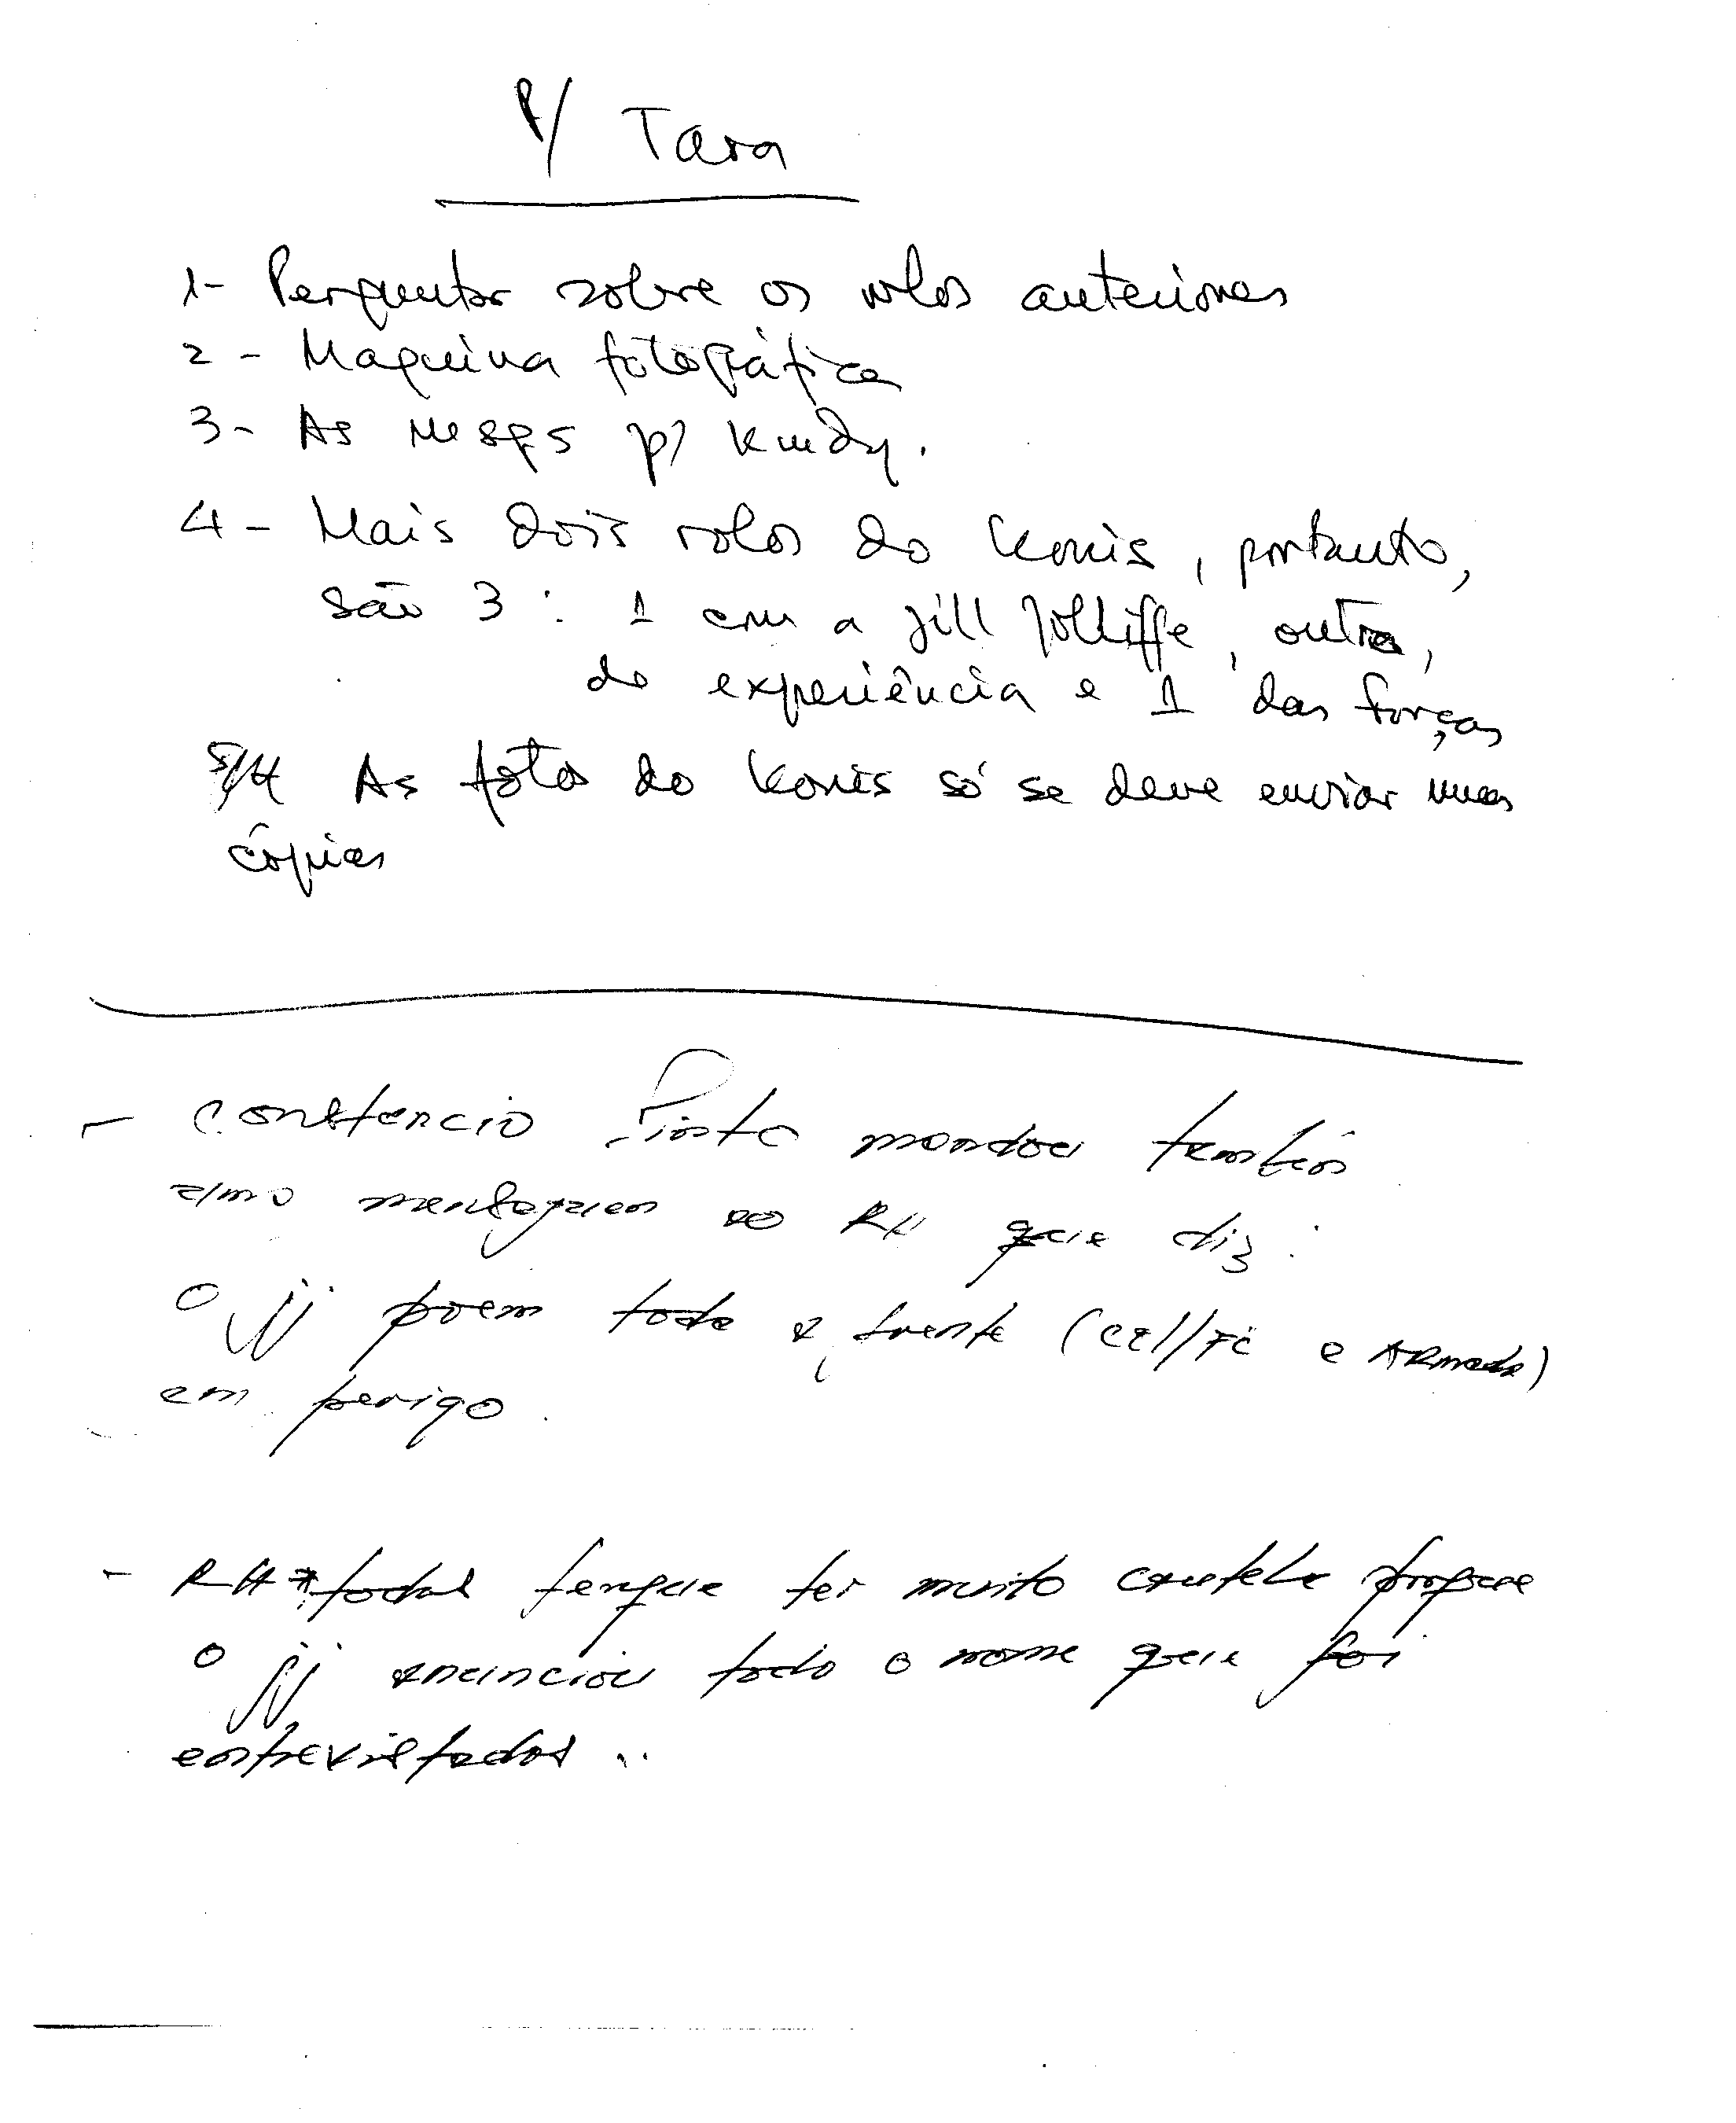 P/ Tara
1- Perguntar sobre os rolos anteriores
2 - Maquina fotográfica
3- As msgs p/
4 - Mais dois rolos do Konis, portanto,
são 3 : 1 com a Jill Jolliffe, outro,
de experiência e 1 das forças
As fotos do Konis só se deve enviar umas
cópias
- Constencio Pinto mandou também
uma ao RH que diz :
O JJ poem toda a frente ( e Armada)
em perigo.
- RH todos tenque ter muito cautela porque
o JJ anunciou todo o nome que foi
entrevistados ..